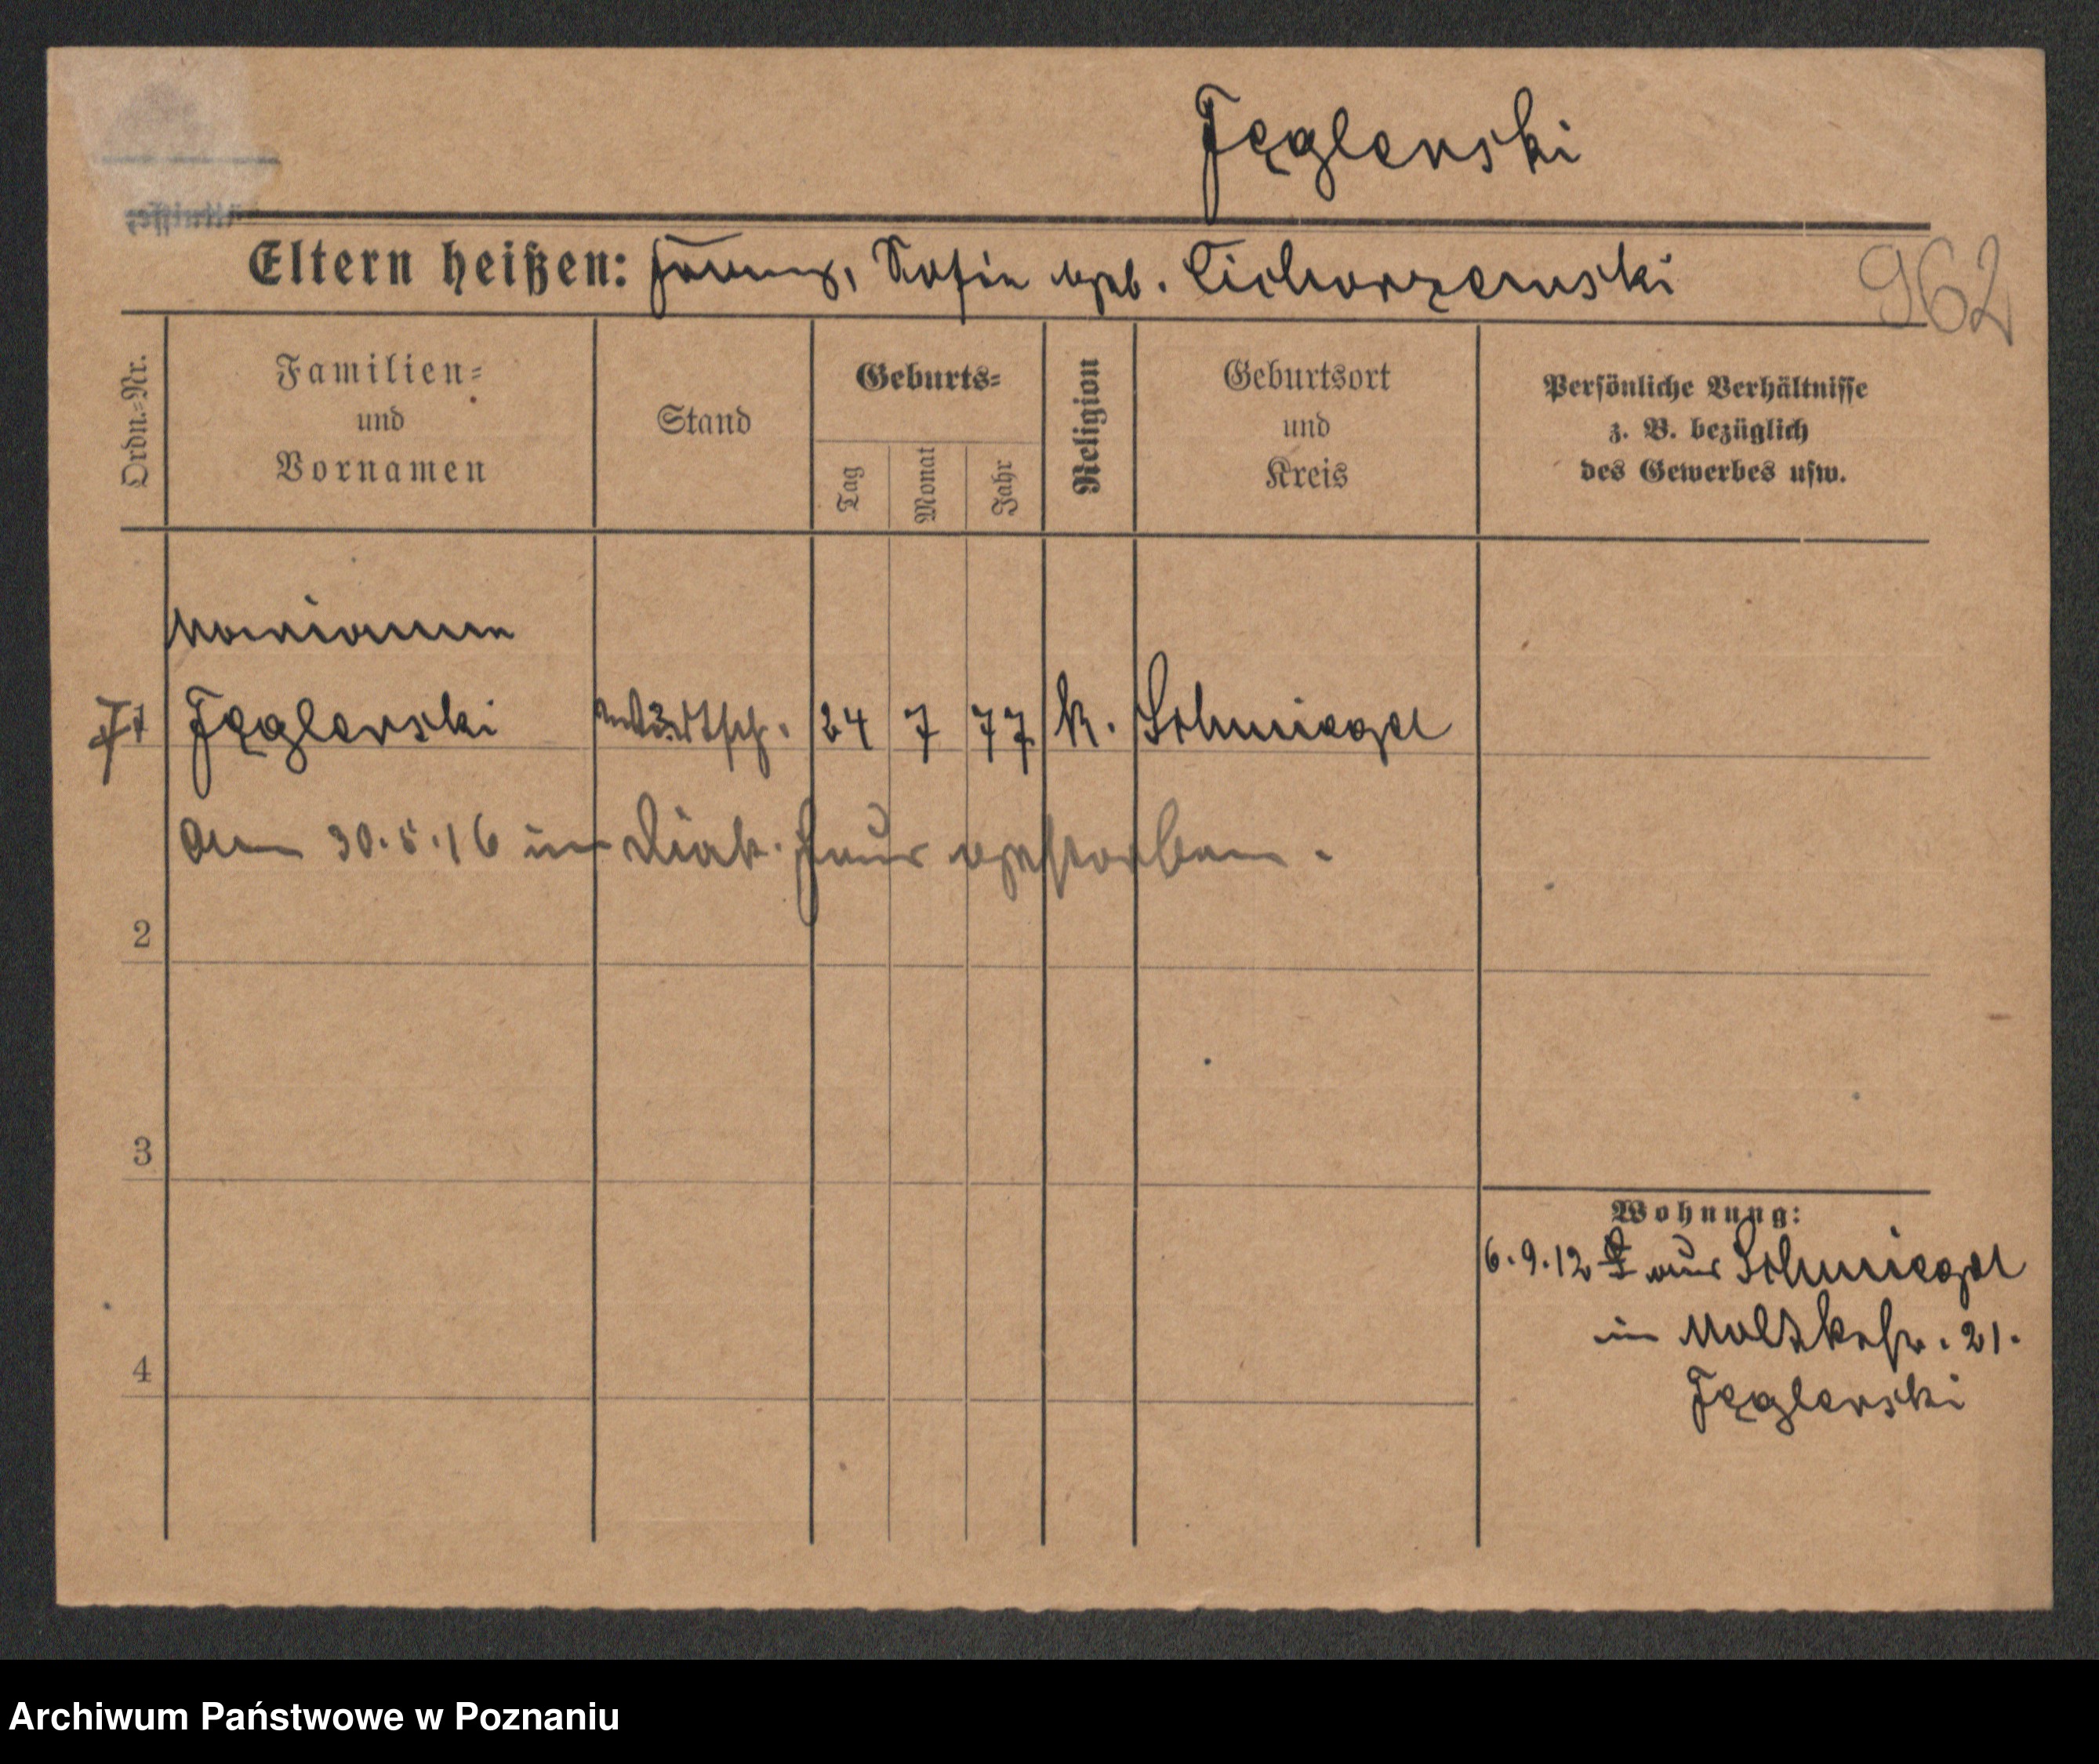 Jęglerski
Eltern heißen: Franz, Sofie geb. Cichorzewski
962
Ordn.=Nr.
Familien=
und
Vornamen
Stand
Geburts=
Tag
Monat
Jahr
Religion
Geburtsort
und
Kreis
Persönliche Verhältnisse
z. B. bezüglich
des Gewerbes usw.
Marianna
1 Jęglerski Wirtsch. 24 7 77 k. Schmiegel
Am 30.5.16 im Diak. Haus gestorben.
2
3
4
Wohnung:
6.9.12 aus Schmiegel
in Moltkestr. 21.
Jęglerski
Archiwum Państwowe w Poznaniu